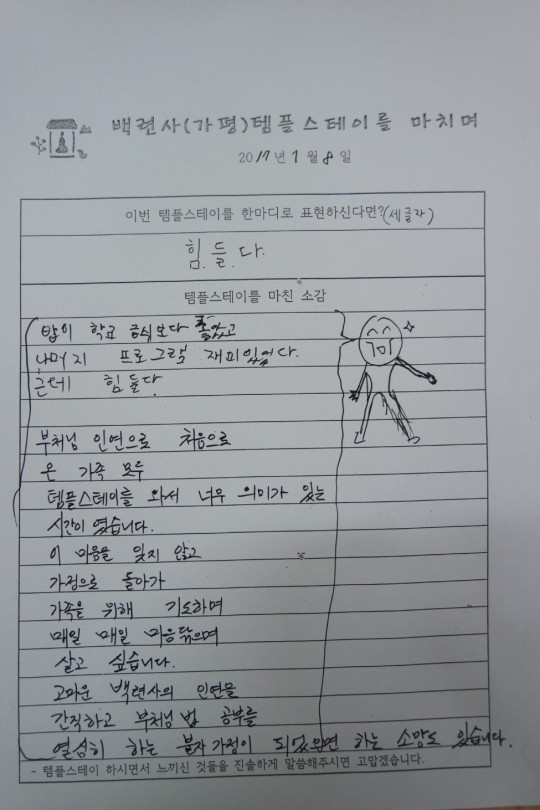 백련사(가평)템플스테이를 마치며
2017년 1월 8일
이번 템플스테이를 한마디로 표현하신다면?(세글자)
힘.들.다.
템플스테이를 마친 소감
밥이 학교 급식보다 좋았고
나머지 프로그램 재미있었다.
근데 힘들다
부처님 인연으로 처음으로
온 가족 모두
템플스테이를 와서 너무 의미가 있는
시간이 였습니다.
이 마음을 잊지 않고
가정으로 돌아가
가족을 위해 기도하며
매일 매일 마음닦으며
살고 싶습니다.
고마운 백련사의 인연을
간직하고 부처님 법 공부를
열심히 하는 불자 가정이 되었으면 하는 소망도 있습니다.
- 템플스테이 하시면서 느끼신 것들을 진솔하게 말씀해주시면 고맙겠습니다.